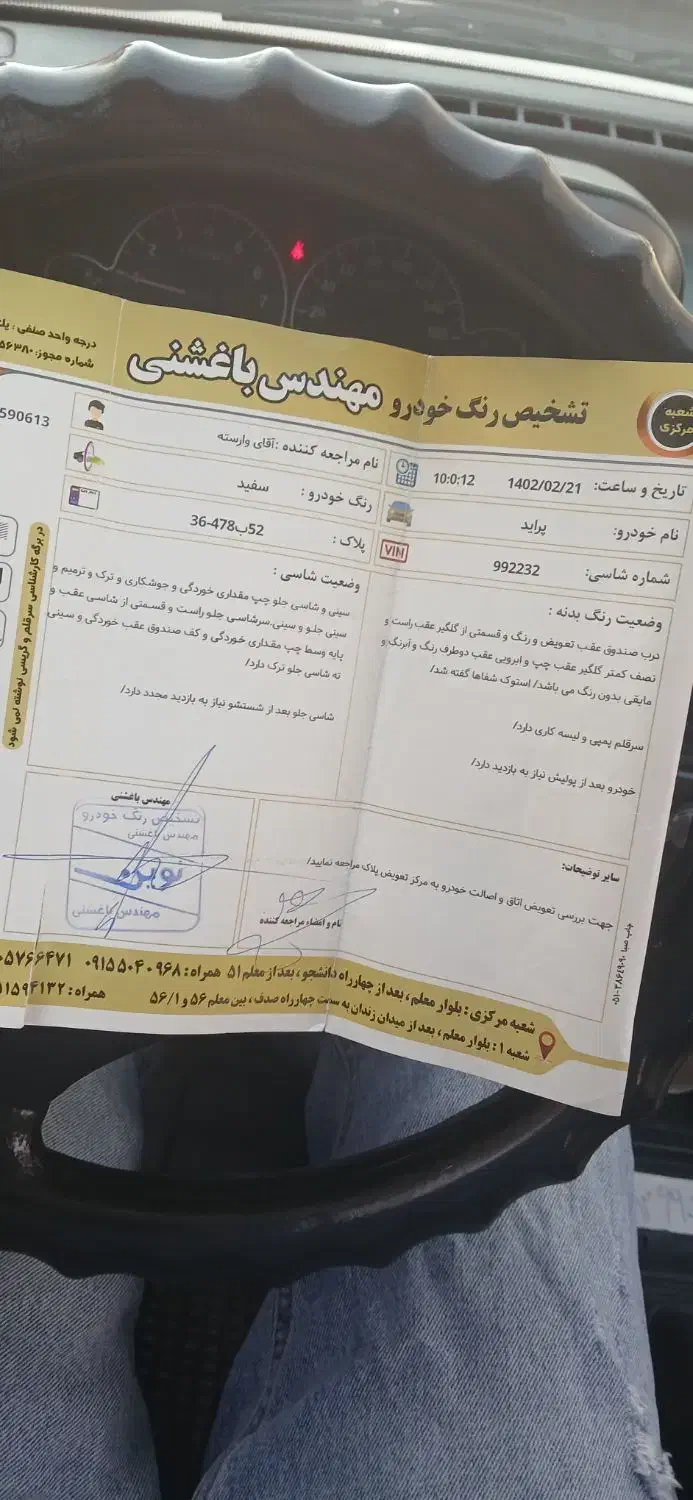 درجه واحد صنفی :
شماره مجوز:
تشخیص رنگ خودرو مهندس باغشنی
شعبه
مرکزی
590613
تاریخ و ساعت: 1402/02/21 10:0:12
نام مراجعه کننده :آقای وارسته
نام خودرو: پراید
رنگ خودرو : سفید
شماره شاسی: 992232
VIN
پلاک : 52ب478-36
وضعیت رنگ بدنه :
درب صندوق عقب تعویض و رنگ و قسمتی از گلگیر عقب راست و
نصف کمتر گلگیر عقب چپ و ابرویی عقب دوطرف رنگ و آبرنگ و
مابقی بدون رنگ می باشد/ استوک شفاها گفته شد/
سرقلم پمپی و لیسه کاری دارد/
خودرو بعد از پولیش نیاز به بازدید دارد/
وضعیت شاسی :
سینی و شاسی جلو چپ مقداری خوردگی و جوشکاری و ترک و ترمیم و
سینی جلو و سینی,سرشاسی جلو راست و قسمتی از شاسی عقب و
پایه وسط چپ مقداری خوردگی و کف صندوق عقب خوردگی و سینی
ته شاسی جلو ترک دارد/
شاسی جلو بعد از شستشو نیاز به بازدید مجدد دارد/
در برگه کارشناسی سرقلم و گریسی نوشته نمی شود
سایر توضیحات:
جهت بررسی تعویض اتاق و اصالت خودرو به مرکز تعویض پلاک مراجعه نمایید/
نام و امضاء مراجعه کننده
مهندس باغشنی
تشخیص رنگ خودرو
مهندس باغشنی
نوین
مهندس باغشنی
شعبه مرکزی : بلوار معلم ، بعد از چهارراه دانشجو ، بعد از معلم ۵۱ همراه : ۰۹۱۵۵۰۴۰۹۶۸
شعبه ۱ : بلوار معلم ، بعد از میدان زندان به سمت چهارراه صدف ، بین معلم ۵۶ و ۵۶/۱ همراه :